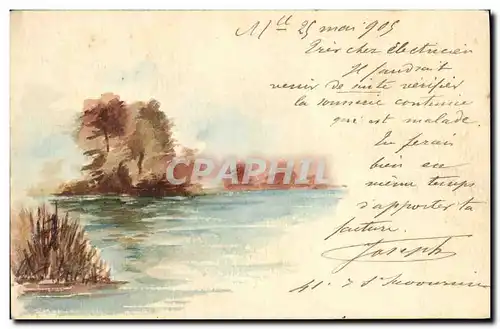 Mlle 25 mai 905
Très cher électricien
Il faudrait
venir de suite vérifier
la sonnerie continue
qui est malade.
Tu ferais
bien en
même temps
d'apporter ta
facture.
Joseph
CARPHIL